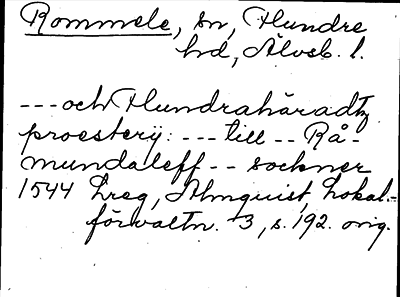 Rommele, sn, Flundre
hd, Älvsb. l.
---och Flundrahäradtz
proesterij: --- till -- Rå-
mundaleff -- sockner
1544 Ereg, Almquist, Lokal-
förvaltn. 3, s. 192. orig.